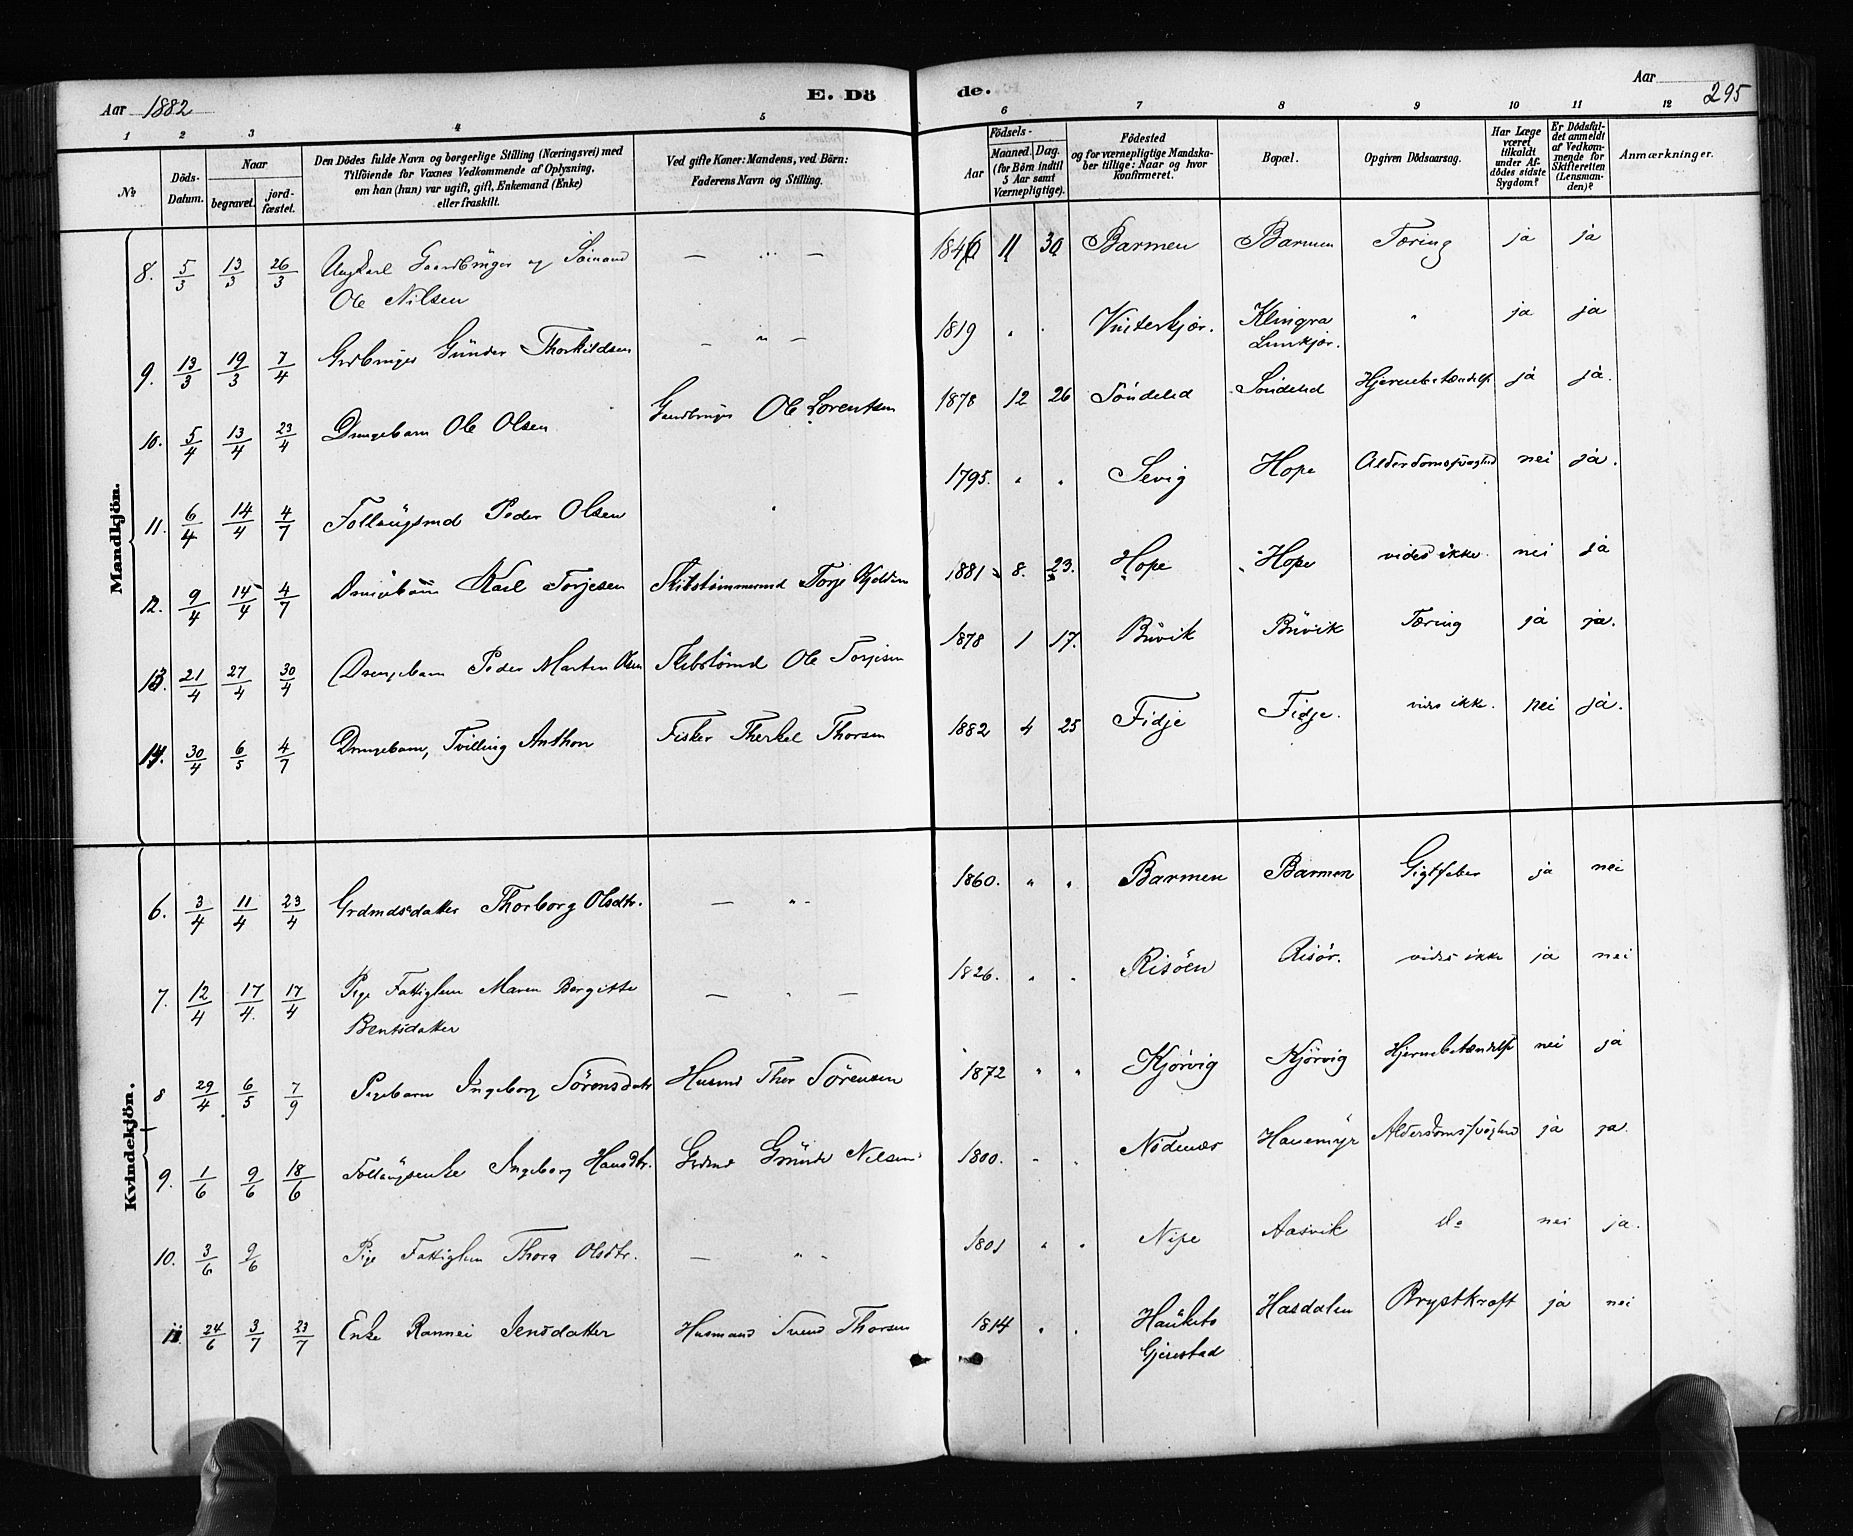 Aar 1882
E. Dö
de.
Aar
295
1 2 3 4 5 6 7 8 9 10 11 12
No
Döds-Datum.
Naar
begravet.
jord-fæstet.
Den Dödes fulde Navn og borgerlige Stilling (Næringsvei) med
Tilföiende for Voxnes Vedkommende af Oplysning,
om han (hun) var ugift, gift, Enkemand (Enke)
eller fraskilt.
Ved gifte Koner: Mandens, ved Börn:
Faderens Navn og Stilling.
Födsels-
Aar
Maaned. Dag.
(for Börn indtil
5 Aar samt
Værnepligtige).
Födested
og for værnepligtige Mandska-
ber tillige: Naar og hvor
konfirmeret.
Bopæl.
Opgiven Dödsaarsag.
Har Læge
været
tilkaldt
under Af-
dödes sidste
Sygdom?
Er Dödsfal-
det anmeldt
af Vedkom-
mende for
Skifteretten
(Lensman-
den)?
Anmærkninger.
Mandkjön.
8. 5/3 13/3 26/3 Ungkarl Gaardbruger og Sömand — " — 1846 11 30 Barmen Barmen Tæring ja ja
Ole Nilsen
9. 13/3 19/3 7/4 Grdbruger Gunder Thorkildsen — " — 1819 " " Vinterkjær. Klingra " ja ja
10. 5/4 13/4 23/4 Drengebarn Ole Olsen Gaardbruger Ole Lorentsen 1878 12 26 Söndeled Söndeled Hjernebetændelse ja ja.
11. 6/4 14/4 4/7 Follaugsmd Peder Olsen " 1795. " " Sevig Hope Alderdomssvaghed nei ja.
12. 9/4 14/4 4/7 Drengebarn Karl Torjesen Skibstömmermd Torje 1881 8. 23. Hope Hope vides ikke. nei ja
13. 21/4 27/4 30/4 Drengebarn Peder Martin Olsen Ole Torjesen 1878 1 17. Buvik Buvik Tæring ja ja.
14. 30/4 6/5 4/7 Drengebarn, Tvilling Anthon Fisker Therkel Thorsen 1882 4 25 Fidje Fidje. vides ikke. nei ja.
Kvindekjön.
6. 3/4 11/4 23/4 Grdmdsdatter Thorborg Olsdtr. — " - 1860. " " Barmen Barmen Gigtfeber ja nei
7. 12/4 17/4. 17/4 Pige Fattiglem Maren Bergitte — " — 1826. " " Risöen Risör. vides ikke ja nei
Bentsdatter
8 29/4 6/5 7/9 Pigebarn Ingeborg Sörensdatr Husmd Thor Sörensen 1872 " " Kjörvig Kjörvig Hjernebetændelse nei ja
9. 1/6 9/6 18/6 Follaugsenke Ingeborg Hansdtr. Grdmd Gunder Nilsen 1800. " " Nödenæs Hauemyr Alderdomssvaghed ja ja.
10. 3/6 9/6 Pige Fattiglem Thora Olsdtr. — " - 1801 " " Nipe Aasvik do nei ja.
11 24/6 3/7 23/7 Enke Rannei Jensdatter Husmand Svend Thorsen 1814 " " Haukets Hasdalen Brystkræft ja nei
Gjerestad